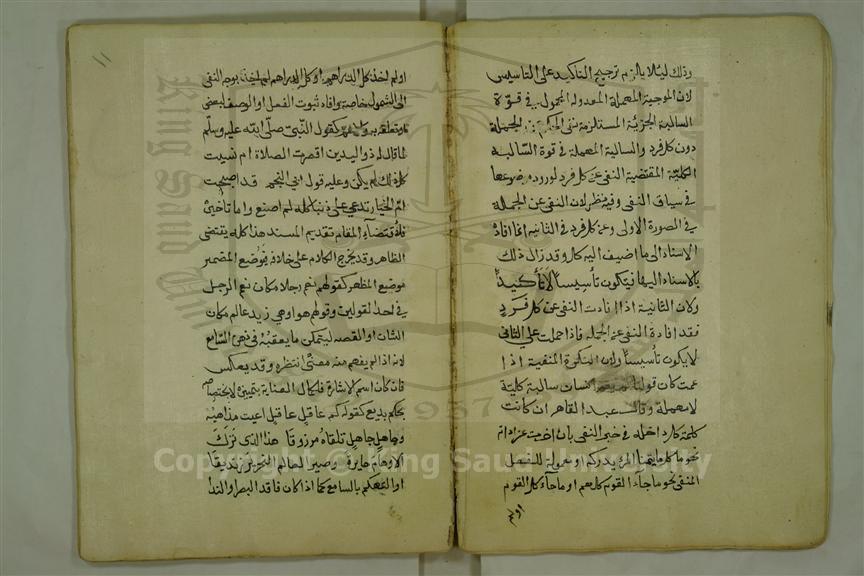 وذلك لئلا يلزم ترجيح التاكيد على التاسيس
لان الموجبة المهملة المعدولة المحمول في قوة
السالبة الجزئية المستلزمة نفي الحكم عن الجملة
دون كل فرد والسالبة المهملة في قوة السالبة
الكلية المقتضية النفي عن كل فرد لورود موضوعها
في سياق النفي وفيه نظر لان النفي عن الجملة
في الصورة الاولى وعن كل فرد في الثانية انما افادة
الاسناد الى ما اضيف اليه كل وقد زال ذلك
بالاسناد اليها فيكون تأسيساً لا تأكيداً
ولان الثانية اذا افادت النفي عن كل فرد
فقد افادة النفي عن الجملة فاذا حملت على الثاني
لا يكون تأسيساً ولان النكرة المنفية اذا
عمت كان قولنا لم يقم انسان سالبة كلية
لا مهملة وقال عبد القاهر ان كانت
كلمة كل داخلة في حيز النفي بان اخرت عن اداته
نحو ما كل ما يتمنا المرؤ يدركه او معمولة للفعل
المنفي نحو ما جاء القوم كلهم او ما جاء كل القوم
اولم
١١
اولم اخذ كل الدراهم او كل الدراهم لم اخذ توجه النفي
الى الشمول خاصة وافاد ثبوت الفعل او الوصف لبعض
او تعلقه به والا عم كقول النبي صلى الله عليه وسلم
لما قال له ذو اليدين اقصرت الصلاة ام نسيت
كل ذلك لم يكن وعليه قول ابي النجم قد اصبحت
ام الخيار تدعي على ذنبا كله لم اصنع واما تأخيره
فلأقتضاء المقام تقديم المسند هذا كله يقتضى
الظاهر وقد يخرج الكلام على خلافه فيوضع المضمر
موضع المظهر كقولهم نعم رجلا مكان نعم الرجل
في احد القولين وقولهم هو او هي زيد عالم مكان
الشان او القصه ليتمكن ما يعقبه في ذهن السامع
لانه اذا لم يفهم منه معنى انتظره وقد يعاكس
فان كان اسم الاشارة فلكمال العناية بتمييزه لاختصاصه
بحكم بديع كقوله كم عاقل عاقل اعيت مذاهبه
وجاهل جاهل تلقاه مرزوقا هذا الذى ترك
الاوهام حايرة وصير العالم النحرير زنديقا
او التهكم بالسامع كما اذا كان فاقد البصر او الندا